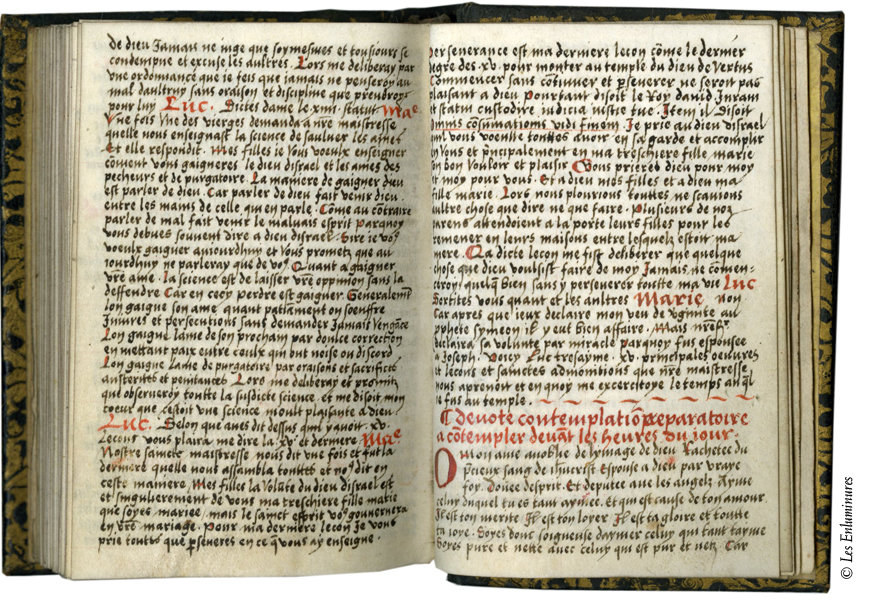 de dieu Jamais ne iuge que soymesmes et tousiours se
condempne et excuse les aultres. Lors me deliberay par
vne ordonnance que ie feis que jamais ne penseroy au
mal daultruy sans oraison et discipline que prendroys
pour luy Luc. Dictes dame le xiiii. statut Mae
Vne fois vne des vierges demanda a nre maistresse
quelle nous enseignast la science de saulver les ames
Et elle respondit. Mes filles ie vous voeulx enseigner
coment vous gaigneres le dieu disrael et les ames des
pecheurs et de purgatoire. La maniere de gaigner dieu
est parler de dieu. Car parler de dieu fait venir dieu
entre les mains de celle qui en parle. Come au contraire
parler de mal fait venir le malvais esprit parquoy
vous debues souvent dire a dieu disrael. Sire ie vos
voeulx gaigner aujourdhuy et vous prometz que au
iourdhuy ne parleray que de vos Quant a gaigner
vre ame. la science est de laisser vre oppinion sans la
deffendre Car en cecy perdre est gaigner Generalemt
lon gaigne son ame quant patiament on soeuffre
Iniures et persecutions sans demander Jamais vengance
Lon gaigne lame de son prochain par doulce correction
en mettant paix entre ceulx qui ont noise ou discord
Lon gaigne lame de purgatoire par oraisons et sacrifices
austerites et penitances Lors me deliberay et promitz
que observeroy toutte la susdicte science. et me disoit mon
coeur que cestoit vne science moult plaisante a dieu
Luc. Selon que aues dit dessus quil y avoit. xv.
Lecons vous plaira me dire la. xv. et derniere Mae
Nostre saincte maistresse nous dit vne fois et fut la
derniere quelle nous assambla touttes et nos dit en
ceste maniere. Mes filles la volute du dieu disrael est
et singulierement de vous ma treschiere fille marie
que soyes mariee. mais le sainct esprit vos gouvernera
en vre mariage. Pour ma derniere lecon Je vous
prie touttes que pseveres en ce q vous ay enseigne.
perseverance est ma derniere lecon come le dernier
degre des. xv. pour monter au temple du dieu de vertus
Commencer sans continuer et pseverer ne seroit pas
plaisant a dieu Pourtant disoit le Roy david Iuravi
et statui custodire iudicia iusticie tue. Item il disoit
omnis consumationis vidi finem. Je prie au dieu disrael
quil vous voeulle touttes avoir en sa garde et accomplir
en vous et pncipalement en ma treschiere fille marie
son bon vouloir et plaisir Vous prieres dieu pour moy
et moy pour vous. Et a dieu mes filles et a dieu ma
fille marie. Lors nous plourions touttes ne scavions
aultre chose que dire ne que faire. Plusieurs de noz
parens attendoient a la porte leurs filles pour les
remener en leurs maisons entre lesquelz estoit ma
mere. La dicte lecon me fist deliberer que quelque
chose que dieu voulsist faire de moy Jamais ne comen-
croy quelq bien sans y perseverer toutte ma vie Luc
Sortites vous quant et les aultres Marie non
Car apres que ieux declaire mon veu de vginite au
pphete symeon il y eut bien affaire. Mais nre sr
declaira sa volunte par miracle parquoy fus espousee
a Joseph. Voicy Luc tresayme. xv. principales oeuvres
lecons et sainctes admonitions que nre maistresse
nous aprenoit et en quoy me excercitoye le temps auql
ie fus au temple.
Devote contemplation preparatoire
a cotempler devat les heures du iour.
O mon ame anoblie de lymaige de dieu Rachetee du
pcieux sang de ihucrist Espouse a dieu par vraye
foy. Douee desprit. Et deputee avec les angelz Ayme
celuy duquel tu es tant aymee. Et qui est cause de ton amour.
Il est ton merite Il est ton loyer Il est ta gloire et toutte
ta ioye. Soyes donc soigneuse daymer celuy qui tant tayme
Soyes pure et nette avec celuy qui est pur et netz. Car
© Les Enluminures